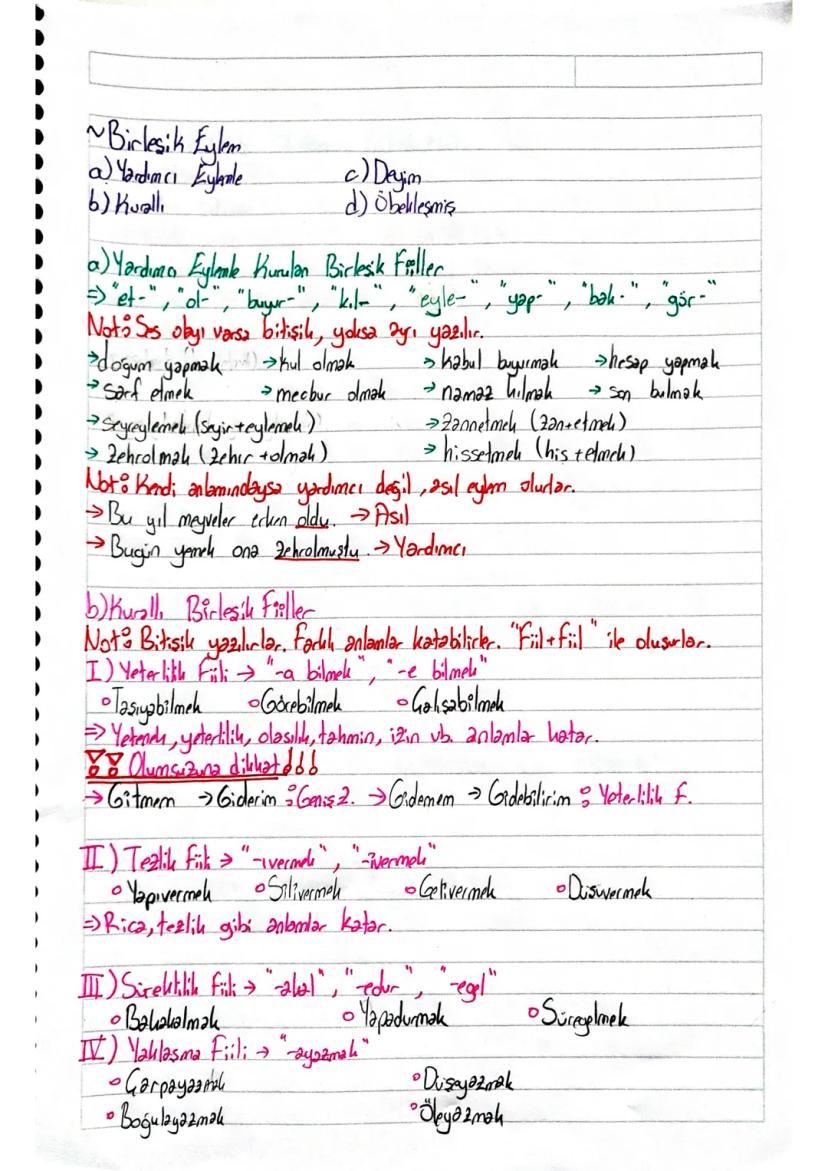 ~Birleşik Eylem
a) Yardımcı Eylemle c) Deyim
b) Kurallı d) Öbekleşmiş
a) Yardımcı Eylemle Kurulan Birleşik Fiiller
=> "et-", "ol-", "buyur-", "kıl-", "eyle-", "yap-", "bak-", "gör-"
Not: Ses olayı varsa bitişik, yoksa ayrı yazılır.
→doğum yapmak →kul olmak →kabul buyurmak →hesap yapmak
→sarf etmek →mecbur olmak →namaz kılmak →son bulmak
→seyreylemek (seyir+eylemek) →Zannetmek (Zan+etmek)
→Zehrolmak (Zehir+olmak) →hissetmek (his+etmek)
Not: Kendi anlamındaysa yardımcı değil, asıl eylem olurlar.
→Bu yıl meyveler erken oldu. →Asıl
→Bugün yemek ona zehrolmuştu. →Yardımcı
b) Kurallı Birleşik Fiiller
Not: Bitişik yazılırlar. Farklı anlamlar katabilirler. "Fiil+fiil" ile oluşurlar.
I) Yeterlilik Fiili → "-a bilmek", "-e bilmek"
∘Taşıyabilmek ∘Görebilmek ∘Çalışabilmek
=> Yetenek, yeterlilik, olasılık, tahmin, izin vb. anlamlar katar.
!! Olumsuzuna dikkat!!!
→Gitmem →Giderim : Geniş Z. →Gidemem →Gidebilirim : Yeterlilik F.
II) Tezlik Fiili → "-ıvermek", "-ivermek"
∘Yapıvermek ∘Silivermek ∘Gelivermek ∘Düşüvermek
=> Rica, tezlik gibi anlamlar katar.
III) Süreklilik Fiili → "-akal", "-edur", "-egel"
∘Bakakalmak ∘Yapadurmak ∘Süregelmek
IV) Yaklaşma Fiili → "-ayazmak"
∘Çarpayazmak ∘Düşeyazmak
∘Boğulayazmak ∘Öleyazmak